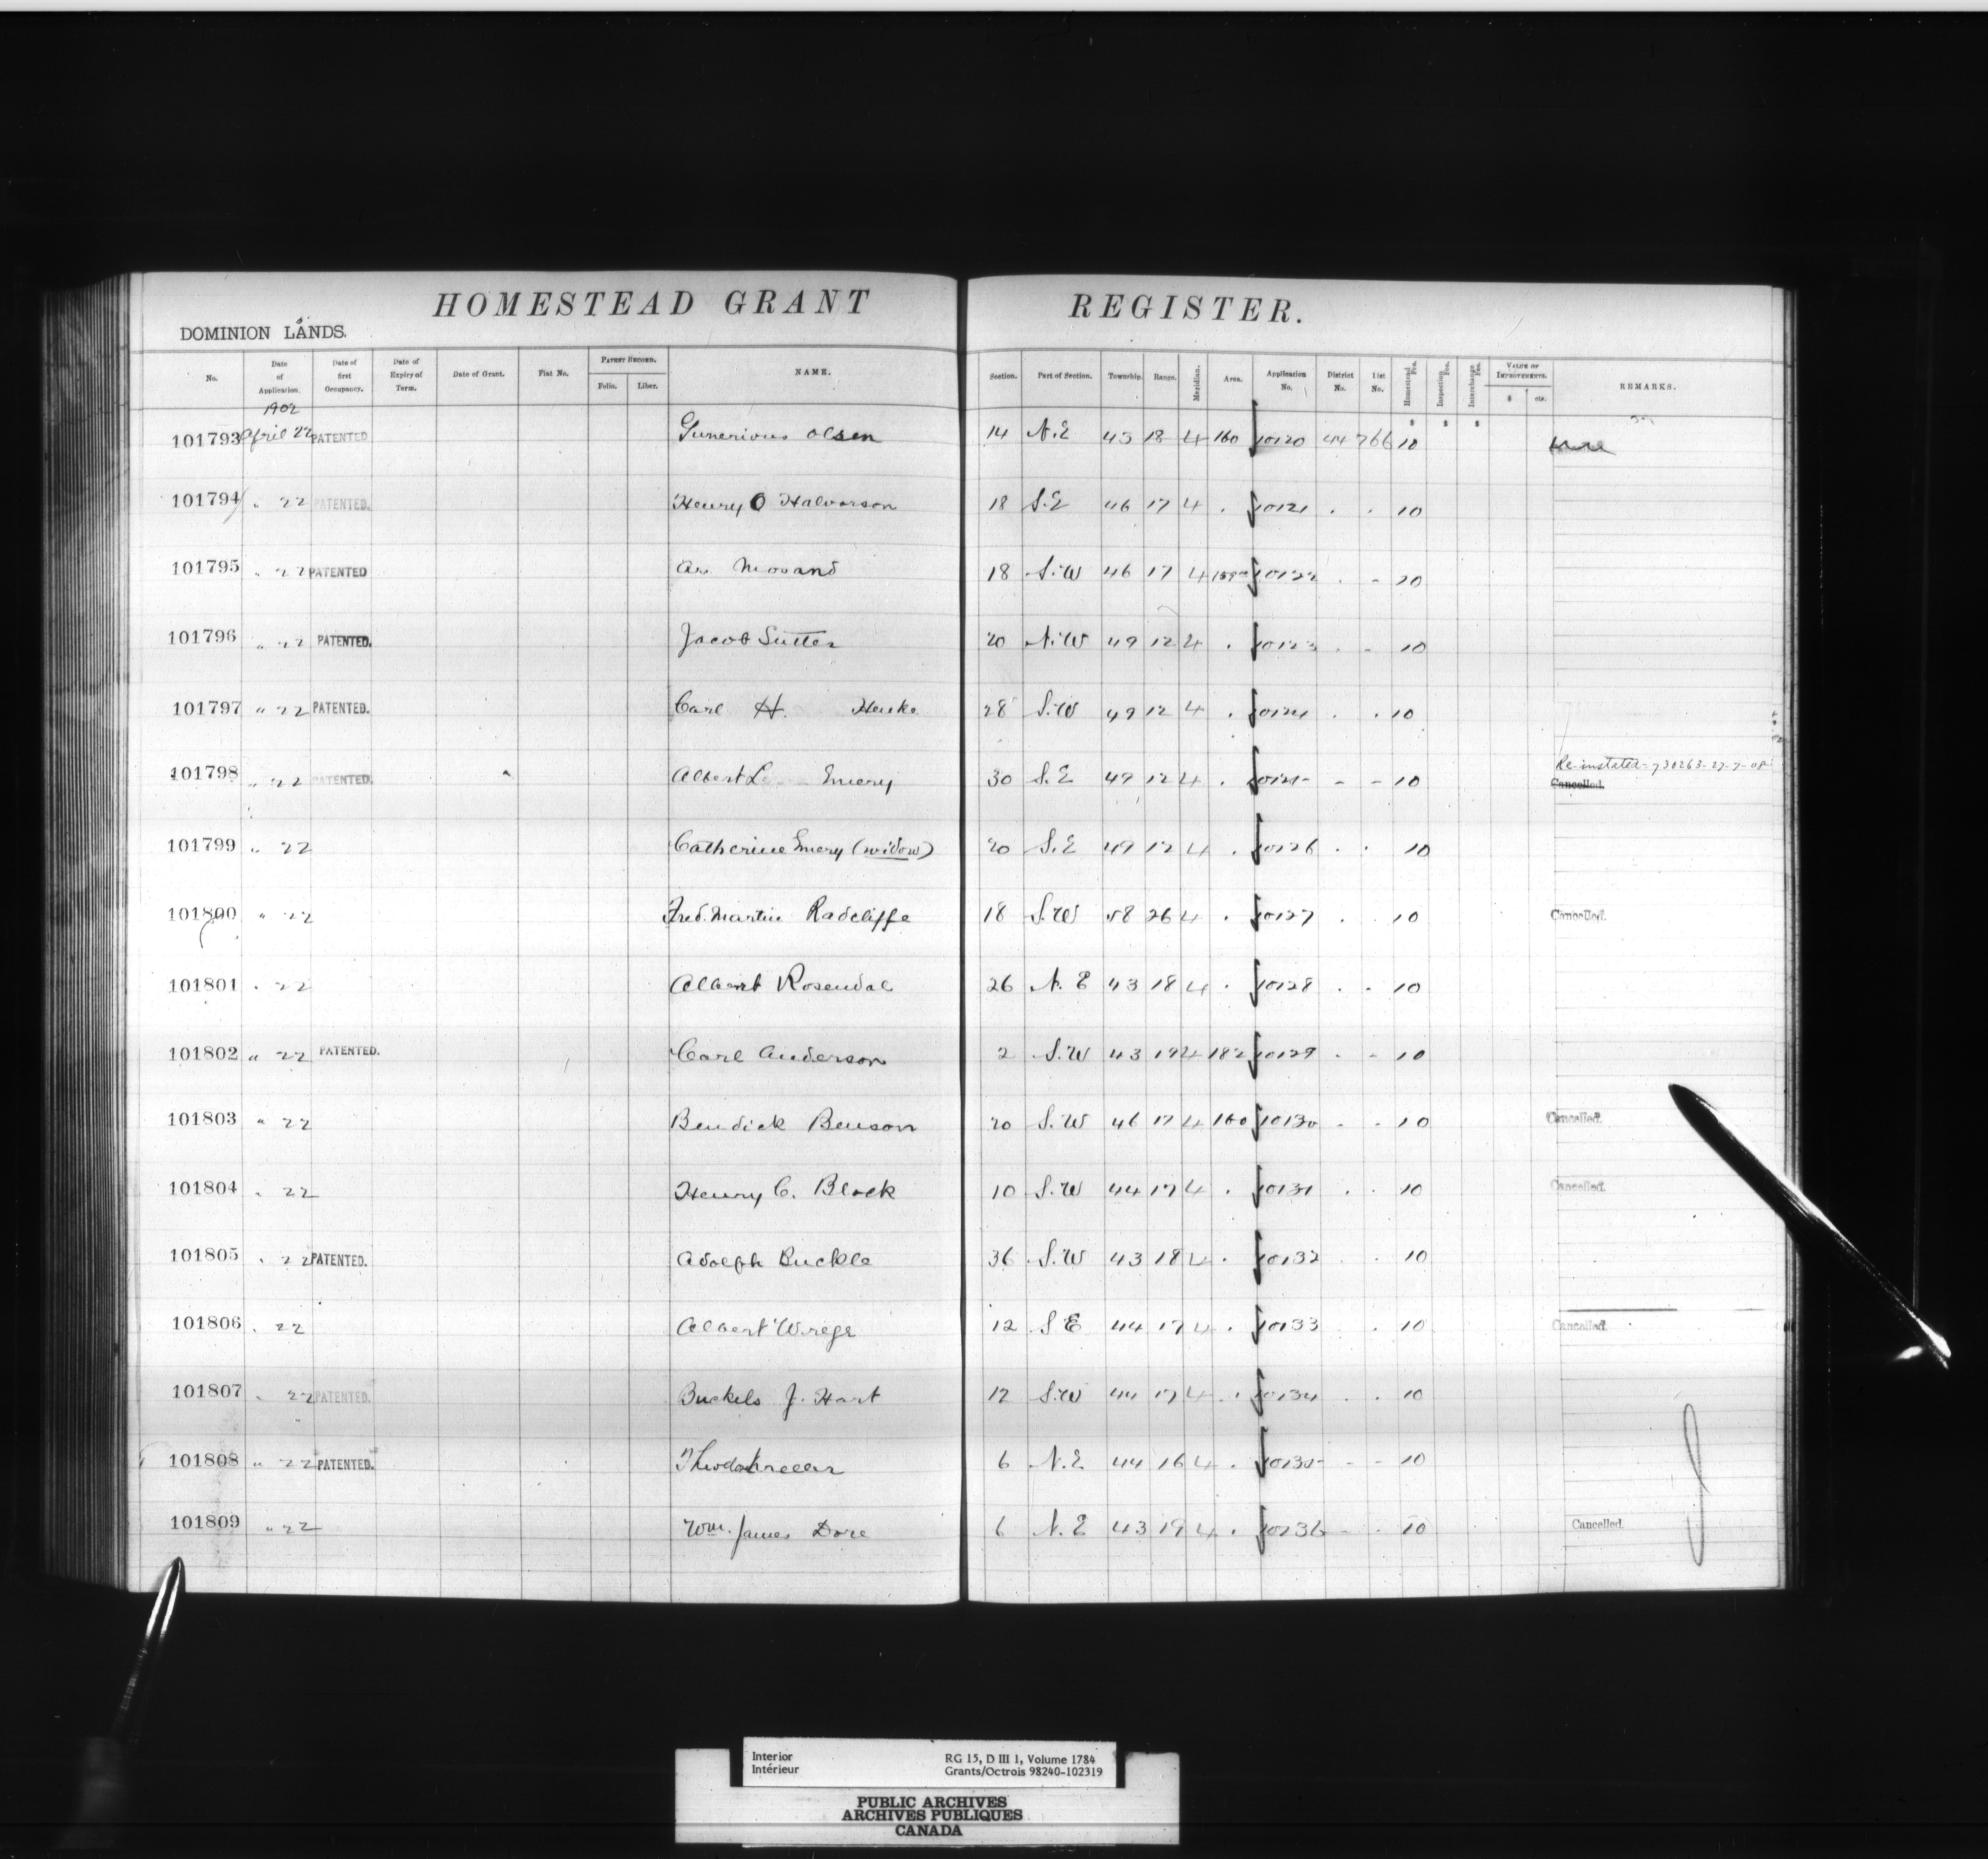 HOMESTEAD GRANT REGISTER.
DOMINION LANDS.
No. Date of Application. Date of first Occupancy. Date of Expiry of Term. Date of Grant. Fiat No. PATENT RECORD. Folio. Liber. NAME. Section. Part of Section. Township. Range. Meridian. Area. Application No. District No. List No. Homestead Fee. Inspection Fee. Interchange Fee. VALUE OF IMPROVEMENTS. $ cts. REMARKS.
1902
101793 April 22 PATENTED Gunerious Olsen 14 N.E 43 18 4 160 10120 44 766 10
101794 " 22 PATENTED. Henry O Halvorson 18 S.E 46 17 4 . 10121 . . 10
101795 " 22 PATENTED 18 S.W 46 17 4 10122 . - 10
101796 " 22 PATENTED. Jacob Sutter 20 N.W 49 12 4 . 10123 . - 10
101797 " 22 PATENTED. Carl H. Henke 28 S.W 49 12 4 . 10124 . . 10
101798 " 22 PATENTED. Albert L Emery 30 S.E 49 12 4 . 10125 - - 10 Re-instated-730263-27-7-08
Cancelled.
101799 " 22 Catherine Emery (widow) 20 S.E 49 12 4 . 10126 . . 10
101800 " 22 Fred. Martin Radcliffe 18 S.W 58 26 4 . 10127 . . 10 Cancelled.
101801 . 22 Albert Rosendal 26 N.E 43 18 4 . 10128 . . 10
101802 " 22 PATENTED. Carl Anderson 2 S.W 43 19 4 182 10129 . - 10
101803 " 22 Bendick Benson 20 S.W 46 17 4 160 10130 - - 10 Cancelled.
101804 . 22 Henry C. Block 10 S.W 44 17 4 . 10131 . . 10 Cancelled.
101805 . 22 PATENTED. Adolph Buckle 36 S.W 43 18 4 . 10132 . . 10
101806 . 22 Albert Wrege 12 S E 44 17 4 . 10133 . 10 Cancelled.
101807 . 22 PATENTED. Buckels J. Hart 12 S.W 44 17 4 . . 10134 . . 10
101808 " 22 PATENTED. 6 N.E 44 16 4 . 10135 - - 10
101809 " 22 Wm. James Dore 6 N.E 43 19 4 . 10136 - . 10 Cancelled.
Interior RG 15, D III 1, Volume 1784
Intérieur Grants/Octrois 98240-102319
PUBLIC ARCHIVES
ARCHIVES PUBLIQUES
CANADA